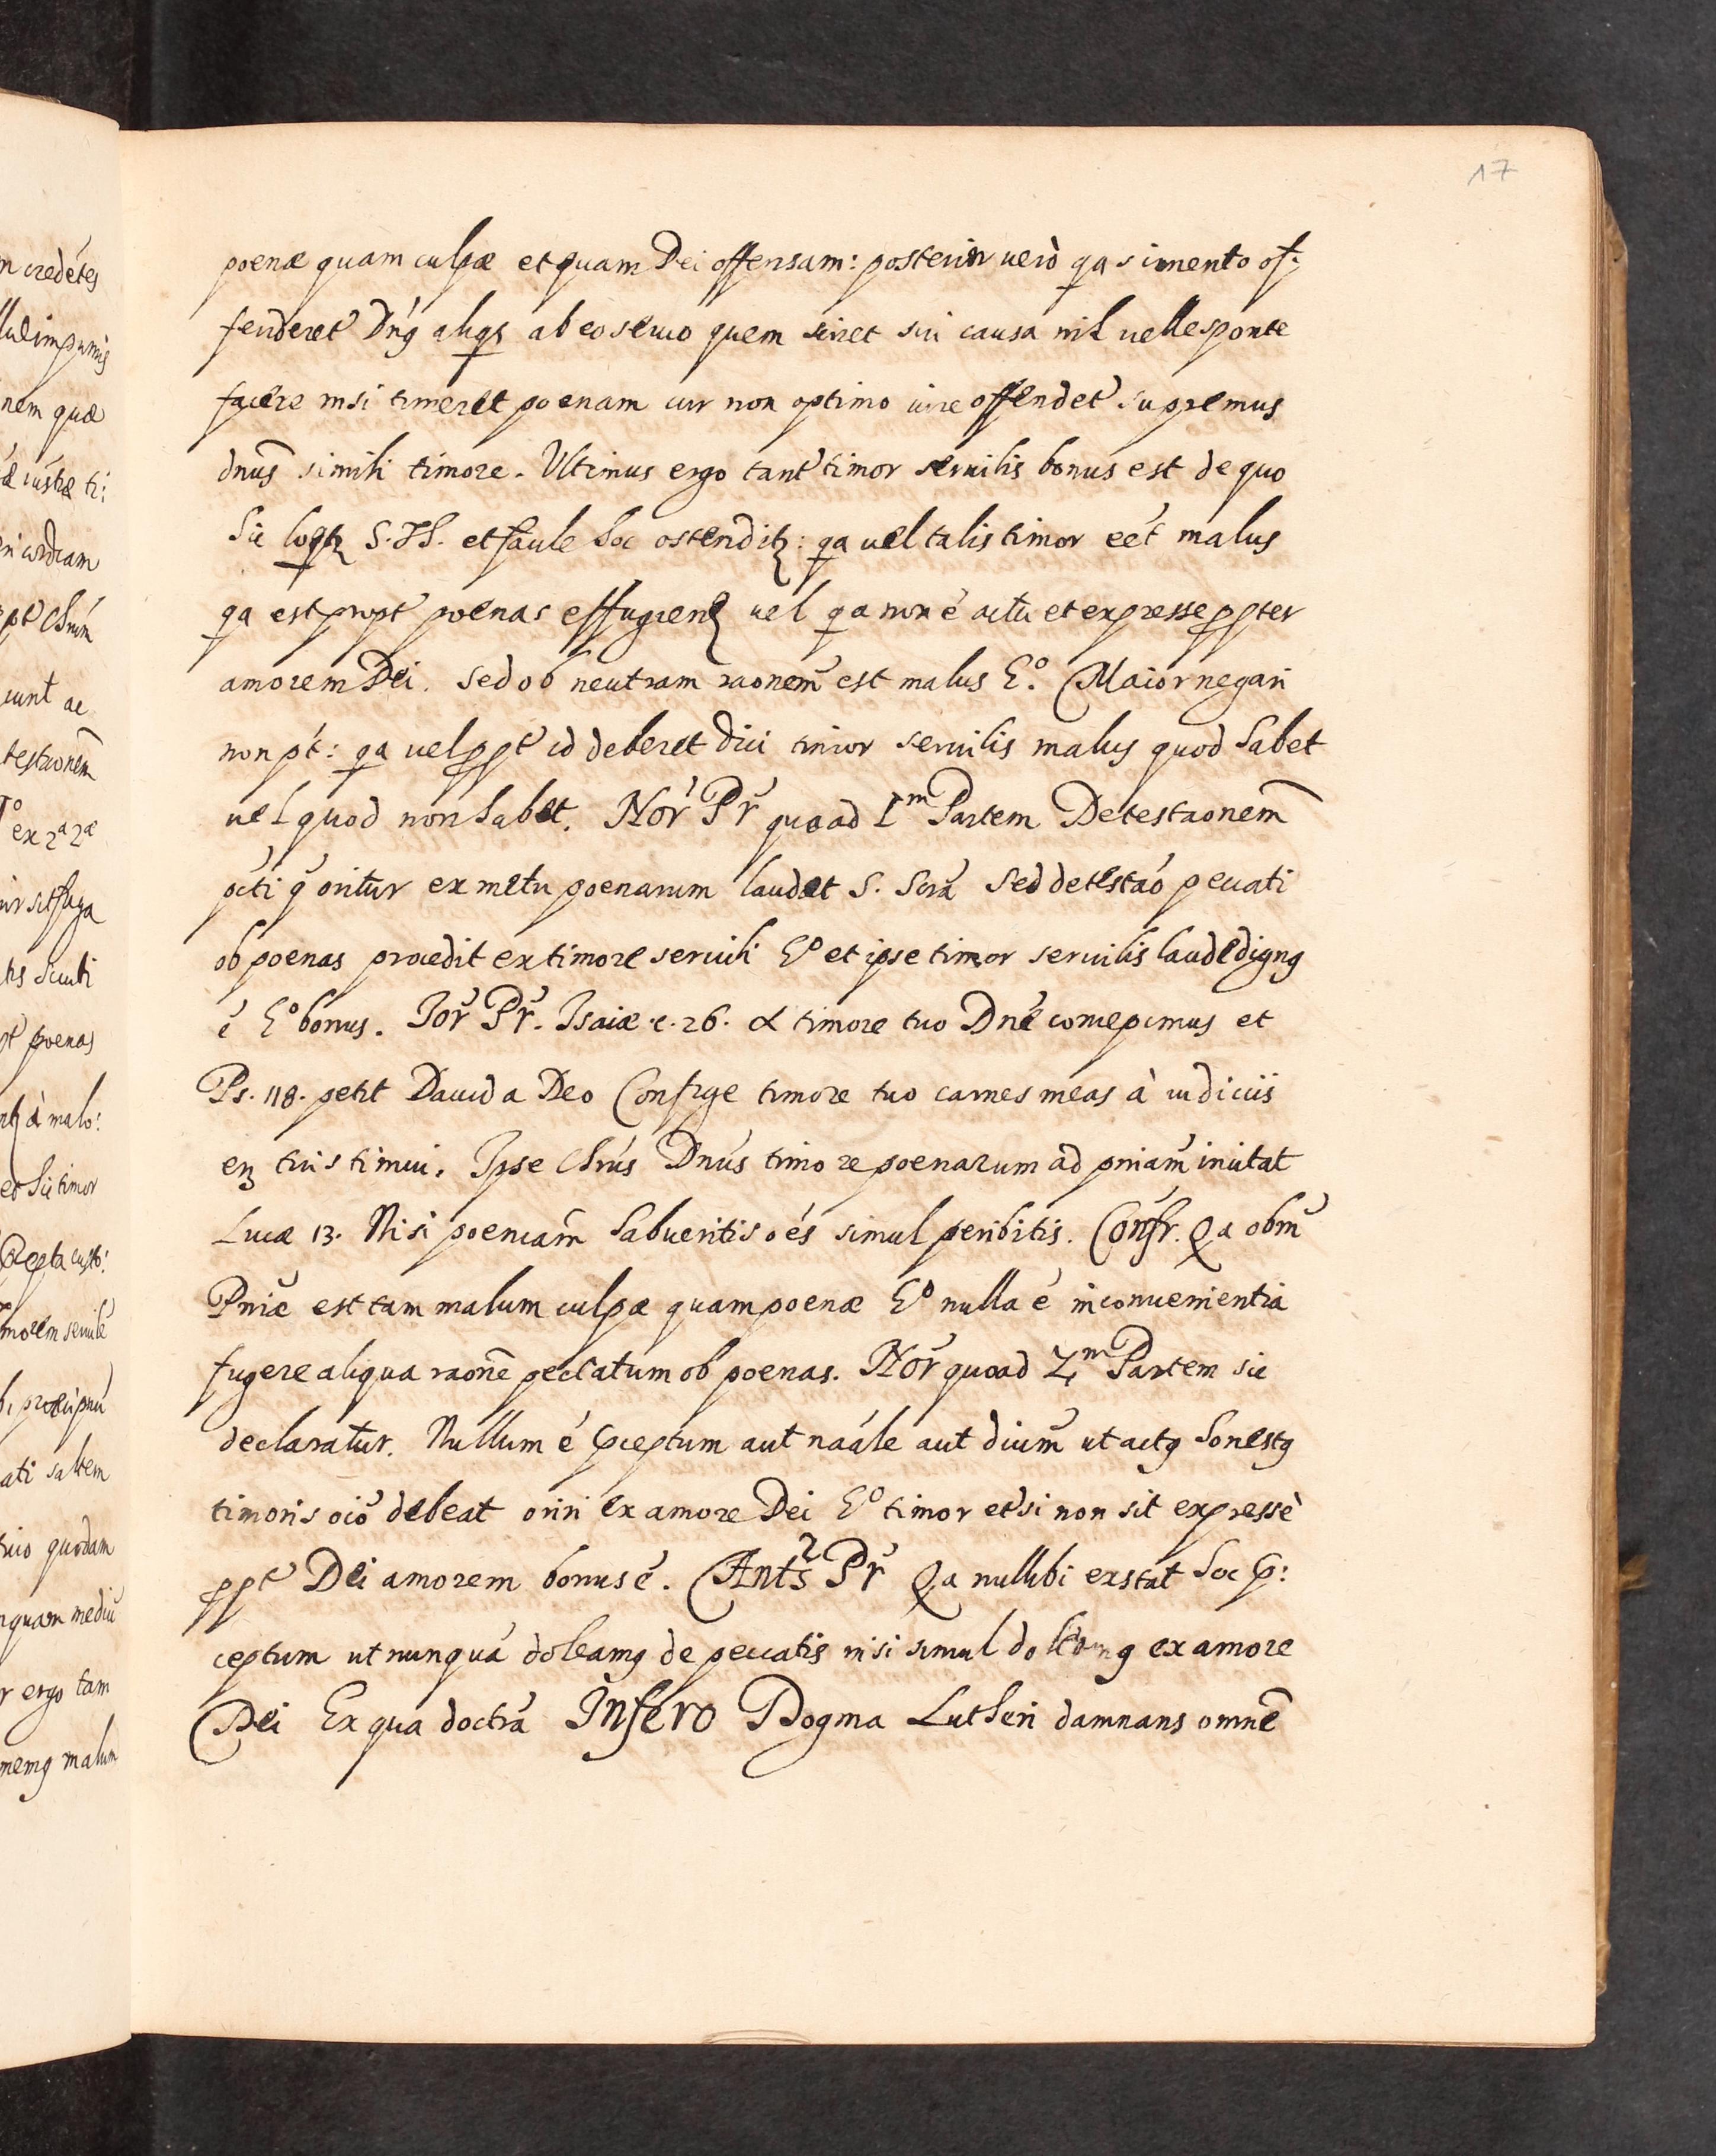 17
poenæ quam culpæ et quam Dei offensam: posterior verò qa si merito of:
fenderet' Dn9 aliqs ab eo servo quem sciret sui causa nil velle sponte
facere nisi timeret poenam cur non optimo iure offendet' supremus
dnus simili timore. Ultimus ergo tant' timor servilis bonus est de quo
hic loqtz S. Th. et facile hoc ostenditz: qa vel talis timor eét malus
qa est propt' poenas effugien vel qa non é actu et expresse ppter
amorem Dei. Sed ob neutram raonem est malus Eº. Maior negari
non pt: qa vel ppt' id deberet dici timor servilis malus quod habet
vel quod non habet. Nor Pr quoad Im Partem Detestaonem
pcti q oritur ex metu poenarum laudat S. Scra Sed detestao peccati
ob poenas procedit ex timore servili Eº et ipse timor servilis laude dign9
é Eº bonus. Ior Pr. Isaiæ c. 26. A timore tuo Dné concepimus et
Ps. 118. petit David a Deo Confige timore tuo carnes meas à iudiciis
en tuis timui. Ipse Chrús Dnús timore poenarum ad pniam invitat
Lucæ 13. Nisi poeniam habueritis oés simul peribitis. Confr. Qa obm
Pniæ est tam malum culpæ quam poenæ Eº nulla é inconvenientia
fugere aliqua raone peccatum ob poenas. Nor quoad 2m Partem sic
declaratur. Nullum é pceptum aut naále aut divum ut act9 honest9
timoris oió debeat oriri ex amore Dei Eº timor etsi non sit expressè
ppt' Dei amorem bonus é. Ants Pr Qa nullibi exstat hoc p:
ceptum ut nunquá doleam9 de peccatis nisi simul doleam9 ex amore
Dei Ex qua doctrá Infero Dogma Lutheri damnans omne